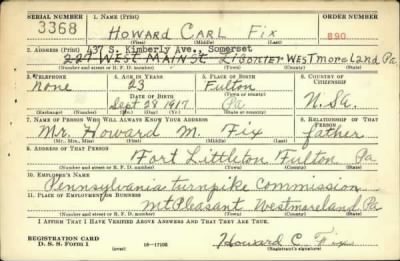 SERIAL NUMBER 1. NAME (Print) ORDER NUMBER
3368 HOWARD CARL FIX 890
(First) (Middle) (Last)
2. ADDRESS (Print) 437 S. Kimberly Ave., Somerset
227 WEST MAIN ST. LIGONIER WESTMORELAND Pa
(Number and street or R. F. D. number) (Town) (County) (State)
3. TELEPHONE 4. AGE IN YEARS 5. PLACE OF BIRTH 6. COUNTRY OF CITIZENSHIP
none 23 Fulton
DATE OF BIRTH (Town or county)
Sept 28 1917 Pa U.S.A.
(Exchange) (Number) (Mo.) (Day) (Yr.) (State or country)
7. NAME OF PERSON WHO WILL ALWAYS KNOW YOUR ADDRESS 8. RELATIONSHIP OF THAT PERSON
Mr. Howard M. Fix father
(Mr., Mrs., Miss) (First) (Middle) (Last)
9. ADDRESS OF THAT PERSON
Fort Littleton Fulton Pa
(Number and street or R. F. D. number) (Town) (County) (State)
10. EMPLOYER'S NAME
Pennsylvania turnpike Commission
11. PLACE OF EMPLOYMENT OR BUSINESS
Mt. Pleasant Westmoreland Pa
(Number and street or R. F. D. number) (Town) (County) (State)
I AFFIRM THAT I HAVE VERIFIED ABOVE ANSWERS AND THAT THEY ARE TRUE.
REGISTRATION CARD
D. S. S. Form 1 (over) 16-17105 Howard C. Fix
(Registrant's signature)